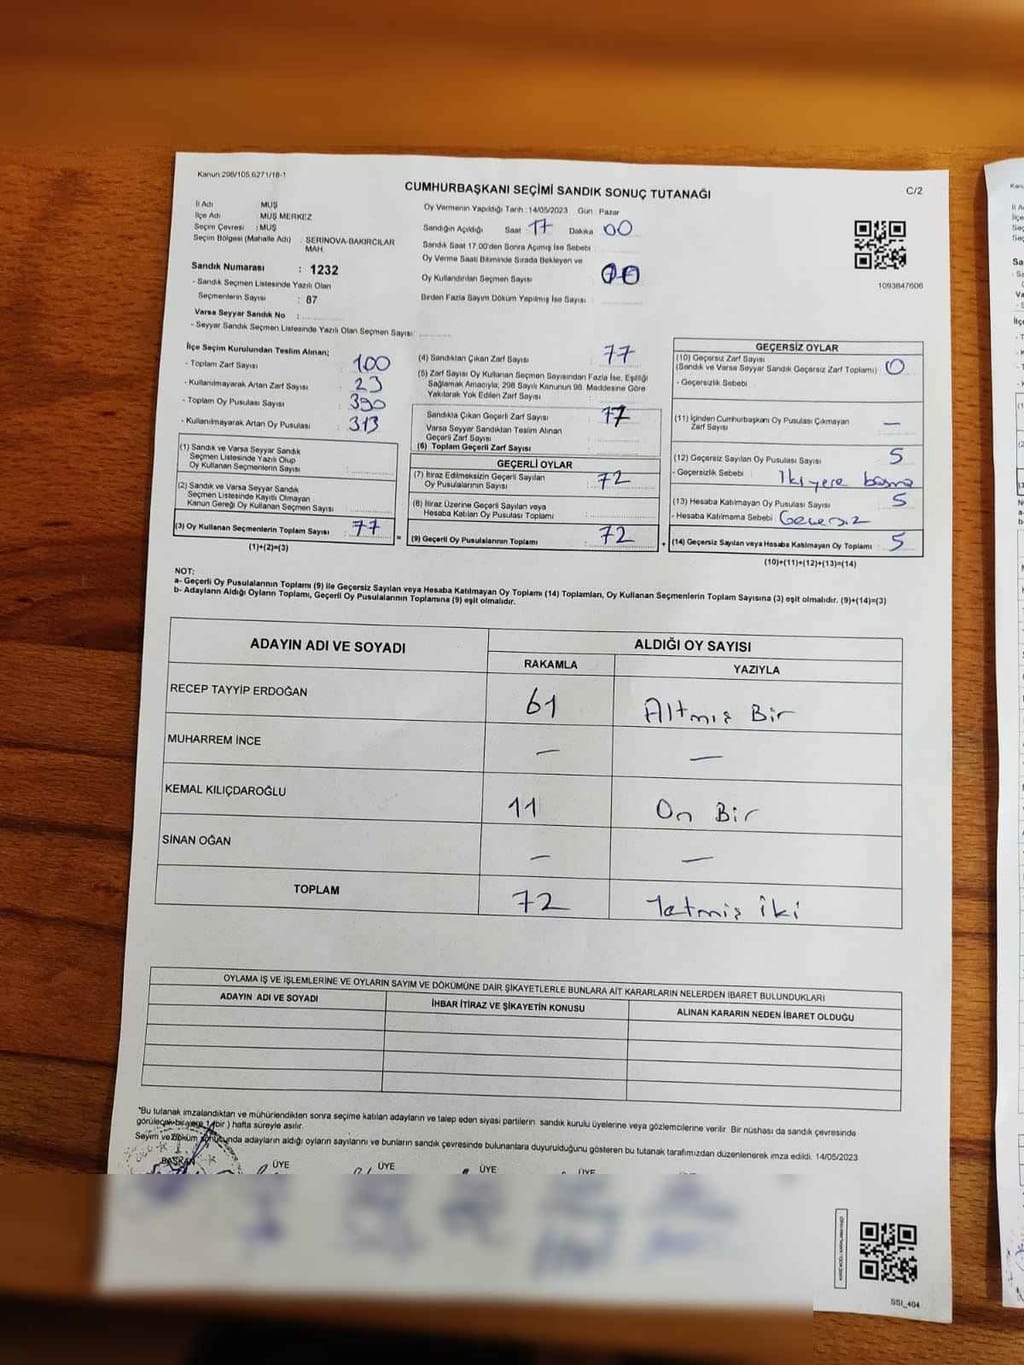 Kanun:298/105,6271/18-1
CUMHURBAŞKANI SEÇİMİ SANDIK SONUÇ TUTANAĞI
C/2
İl Adı : MUŞ
İlçe Adı MUŞ MERKEZ
Seçim Çevresi : MUŞ
Seçim Bölgesi (Mahalle Adı) : SERİNOVA-BAKIRCILAR MAH.
Sandık Numarası : 1232
- Sandık Seçmen Listesinde Yazılı Olan
Seçmenlerin Sayısı : 87
Varsa Seyyar Sandık No :
- Seyyar Sandık Seçmen Listesinde Yazılı Olan Seçmen Sayısı:
Oy Vermenin Yapıldığı Tarih : 14/05/2023 Gün : Pazar
Sandığın Açıldığı Saat 17 Dakika 00
Sandık Saat 17.00'den Sonra Açılmış İse Sebebi :
Oy Verme Saati Bitiminde Sırada Bekleyen ve
Oy Kullandırılan Seçmen Sayısı
Birden Fazla Sayım Döküm Yapılmış İse Sayısı :
1093847606
İlçe Seçim Kurulundan Teslim Alınan;
- Toplam Zarf Sayısı 100
- Kullanılmayarak Artan Zarf Sayısı 23
- Toplam Oy Pusulası Sayısı 390
- Kullanılmayarak Artan Oy Pusulası 313
(1) Sandık ve Varsa Seyyar Sandık
Seçmen Listesinde Yazılı Olup
Oy Kullanan Seçmenlerin Sayısı
(2) Sandık ve Varsa Seyyar Sandık
Seçmen Listesinde Kayıtlı Olmayan
Kanun Gereği Oy Kullanan Seçmen Sayısı :
(3) Oy Kullanan Seçmenlerin Toplam Sayısı 77
(1)+(2)=(3)
(4) Sandıktan Çıkan Zarf Sayısı : 77
(5) Zarf Sayısı Oy Kullanan Seçmen Sayısından Fazla İse, Eşitliği
Sağlamak Amacıyla; 298 Sayılı Kanunun 98. Maddesine Göre
Yakılarak Yok Edilen Zarf Sayısı :
Sandıkta Çıkan Geçerli Zarf Sayısı 77
Varsa Seyyar Sandıktan Teslim Alınan
Geçerli Zarf Sayısı
(6) Toplam Geçerli Zarf Sayısı
GEÇERLİ OYLAR
(7) İtiraz Edilmeksizin Geçerli Sayılan
Oy Pusulalarının Sayısı : 72
(8) İtiraz Üzerine Geçerli Sayılan veya
Hesaba Katılan Oy Pusulası Toplamı :
(9) Geçerli Oy Pusulalarının Toplamı : 72
GEÇERSİZ OYLAR
(10) Geçersiz Zarf Sayısı
(Sandık ve Varsa Seyyar Sandık Geçersiz Zarf Toplamı) : 0
- Geçersizlik Sebebi
(11) İçinden Cumhurbaşkanı Oy Pusulası Çıkmayan
Zarf Sayısı : —
(12) Geçersiz Sayılan Oy Pusulası Sayısı : 5
- Geçersizlik Sebebi : İki yere basma
(13) Hesaba Katılmayan Oy Pusulası Sayısı : 5
- Hesaba Katılmama Sebebi : Geçersiz
(14) Geçersiz Sayılan veya Hesaba Katılmayan Oy Toplamı : 5
(10)+(11)+(12)+(13)=(14)
NOT:
a- Geçerli Oy Pusulalarının Toplamı (9) ile Geçersiz Sayılan veya Hesaba Katılmayan Oy Toplamı (14) Toplamları, Oy Kullanan Seçmenlerin Toplam Sayısına (3) eşit olmalıdır. (9)+(14)=(3)
b- Adayların Aldığı Oyların Toplamı, Geçerli Oy Pusulalarının Toplamına (9) eşit olmalıdır.
ADAYIN ADI VE SOYADI
ALDIĞI OY SAYISI
RAKAMLA YAZIYLA
RECEP TAYYİP ERDOĞAN 61 Altmış Bir
MUHARREM İNCE — —
KEMAL KILIÇDAROĞLU 11 On Bir
SİNAN OĞAN — —
TOPLAM 72 Yetmiş iki
OYLAMA İŞ VE İŞLEMLERİNE VE OYLARIN SAYIM VE DÖKÜMÜNE DAİR ŞİKAYETLERLE BUNLARA AİT KARARLARIN NELERDEN İBARET BULUNDUKLARI
ADAYIN ADI VE SOYADI İHBAR İTİRAZ VE ŞİKAYETİN KONUSU ALINAN KARARIN NEDEN İBARET OLDUĞU
*Bu tutanak imzalandıktan ve mühürlendikten sonra seçime katılan adayların ve talep eden siyasi partilerin sandık kurulu üyelerine veya gözlemcilerine verilir. Bir nüshası da sandık çevresinde
görülecek bir yere 1 (bir ) hafta süreyle asılır.
Sayım ve döküm sonucunda adayların aldığı oyların sayılarını ve bunların sandık çevresinde bulunanlara duyurulduğunu gösteren bu tutanak tarafımızdan düzenlenerek imza edildi. 14/05/2023
BAŞKAN ÜYE ÜYE ÜYE ÜYE
SSI_404